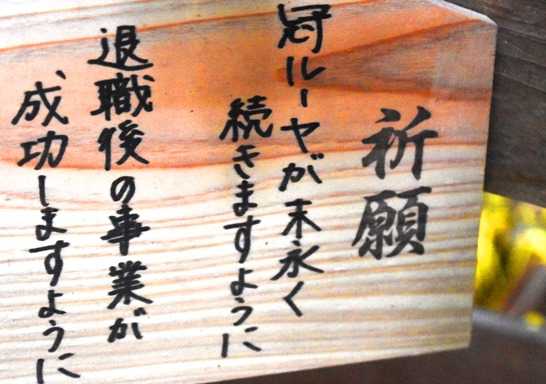 祈願
冠ルーヤが末永く
続きますように
退職後の事業が
成功しますように